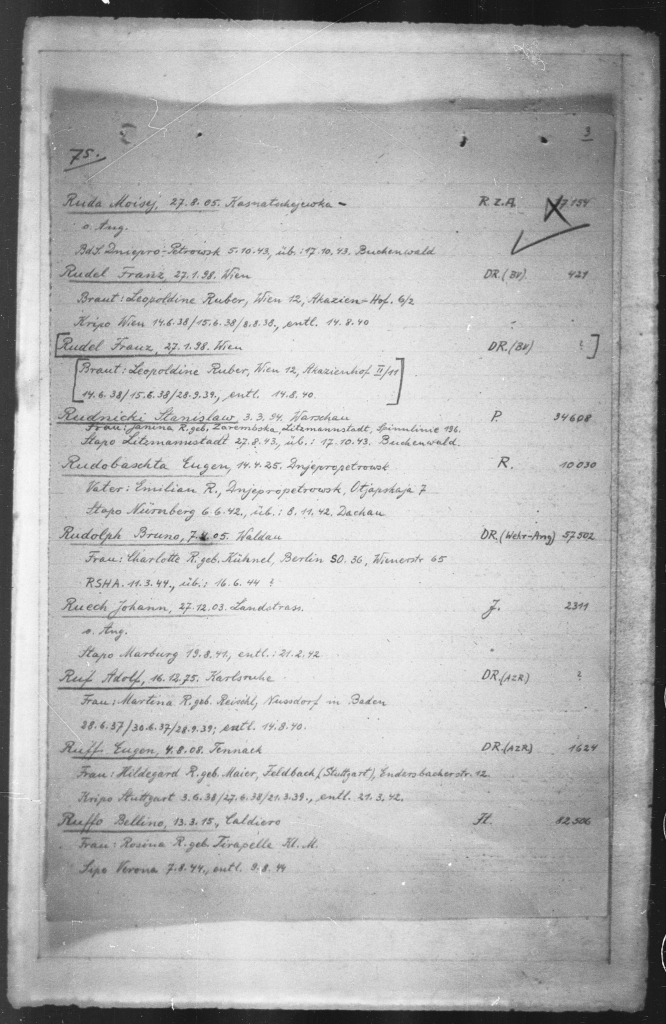 3
75.
Ruda Moisej, 27.8.05. Kasnatschejewka - R.Z.A. 7154
o. Ang.
BdS. Dnjepro-Petrowsk 5.10.43, üb.: 17.10.43. Buchenwald
Rudel Franz, 27.1.98. Wien DR.(BV). 429
Braut: Leopoldine Ruber, Wien 12, Akazien-Hof. 6/2
Kripo Wien 14.6.38/15.6.38/8.8.38., entl. 14.8.40
[Rudel Franz, 27.1.98. Wien DR.(BV) ? ]
[Braut: Leopoldine Ruber, Wien 12, Akazienhof II/11
14.6.38/15.6.38/28.9.39., entl. 14.8.40.]
Rudnicki Stanislaw, 3.3.94. Warschau P. 34608
Frau: Janina R. geb. Zarembska, Litzmannstadt, Spinnlinie 136.
Stapo Litzmannstadt 27.8.43, üb.: 17.10.43. Buchenwald.
Rudobaschta Eugen, 14.4.25. Dnjepropetrowsk R. 10030
Vater: Emilian R., Dnjepropetrowsk, Otjapskaja 7
Stapo Nürnberg 6.6.42., üb.: 8.11.42. Dachau
Rudolph Bruno, 05. Waldau DR.(Wehr-Ang) 57502
Frau: Charlotte R. geb. Kühnel, Berlin SO. 36, Wienerstr 65
RSHA. 11.3.44., üb.: 16.6.44 ?
Ruech Johann, 27.12.03. Landstrass. J. 2311
o. Ang.
Stapo Marburg 19.8.41., entl.: 21.2.42
Ruf Adolf, 16.12.75. Karlsruhe DR.(AZR) ?
Frau: Martina R. geb. Reischl, Nussdorf in Baden
28.6.37/30.6.37/28.9.39; entl. 14.8.40.
Ruff Eugen, 4.8.08. Fennach DR.(AZR) 1624
Frau: Hildegard R. geb. Maier, Feldbach (Stuttgart), Endersbacherstr. 12.
Kripo Stuttgart 3.6.38/27.6.38/21.3.39., entl. 21.3.42.
Ruffo Bellino, 13.3.15., Caldiero It. 12506
Frau: Rosina R. geb. Tirapelle Kl. M.
Sipo Verona 7.8.44., entl. 9.8.44